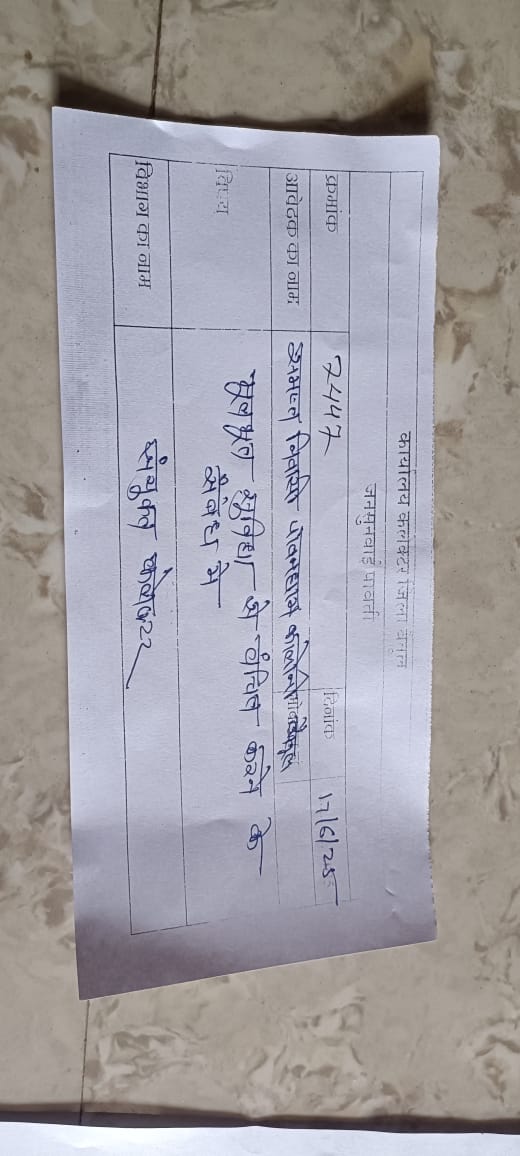 कार्यालय कलेक्टर जिला
जनसुनवाई पावती
क्रमांक 7447 दिनांक 17/6/25
आवेदक का नाम समस्त निवासी पवनधाम कॉलोनी
विषय मूलभूत सुविधा से वंचित करने के
संबंध में
विभाग का नाम संयुक्त कलेक्टर